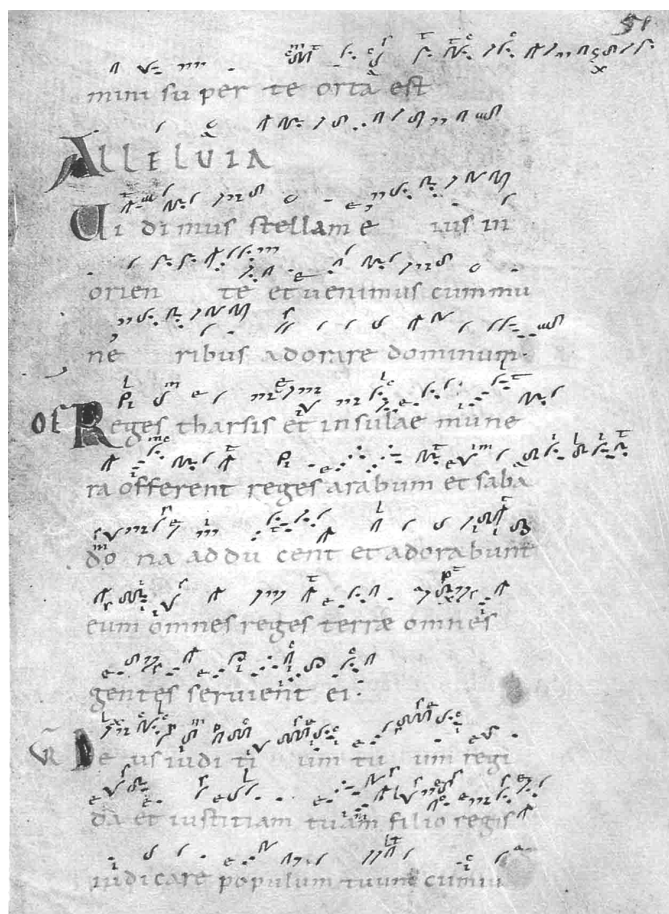 51
mini su per te orta est
ALLELUIA
Ui di mus stellam e ius in
orien te et uenimus cum mu
ne ribus adorare dominum.
OF Reges tharsis et insulae mune
ra offerent reges arabum et saba
do na ad du cent et adorabunt
eum omnes reges terræ omnes
gentes seruient ei.
VR De us iudi ti um tu um regi
da et iustitiam tuam filio regis
iudicare populum tuum cum iu